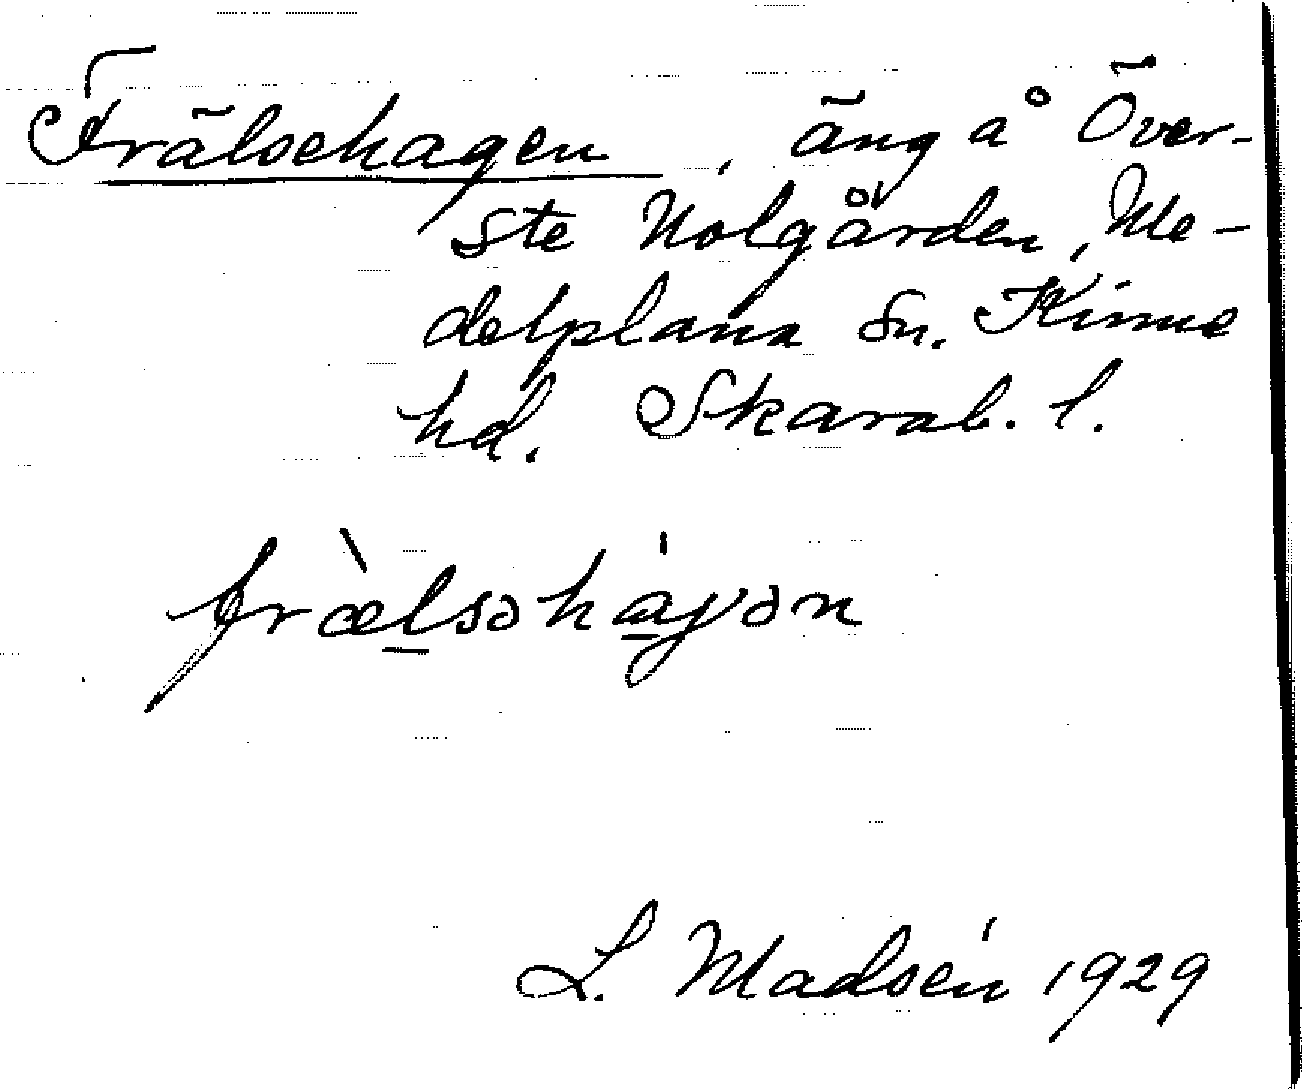 Frälsehagen, äng å Över-
ste Nolgården, Me-
delplana sn. Kinne
hd. Skarab. l.
fræ̀lsəháɣən
L. Madsén 1929